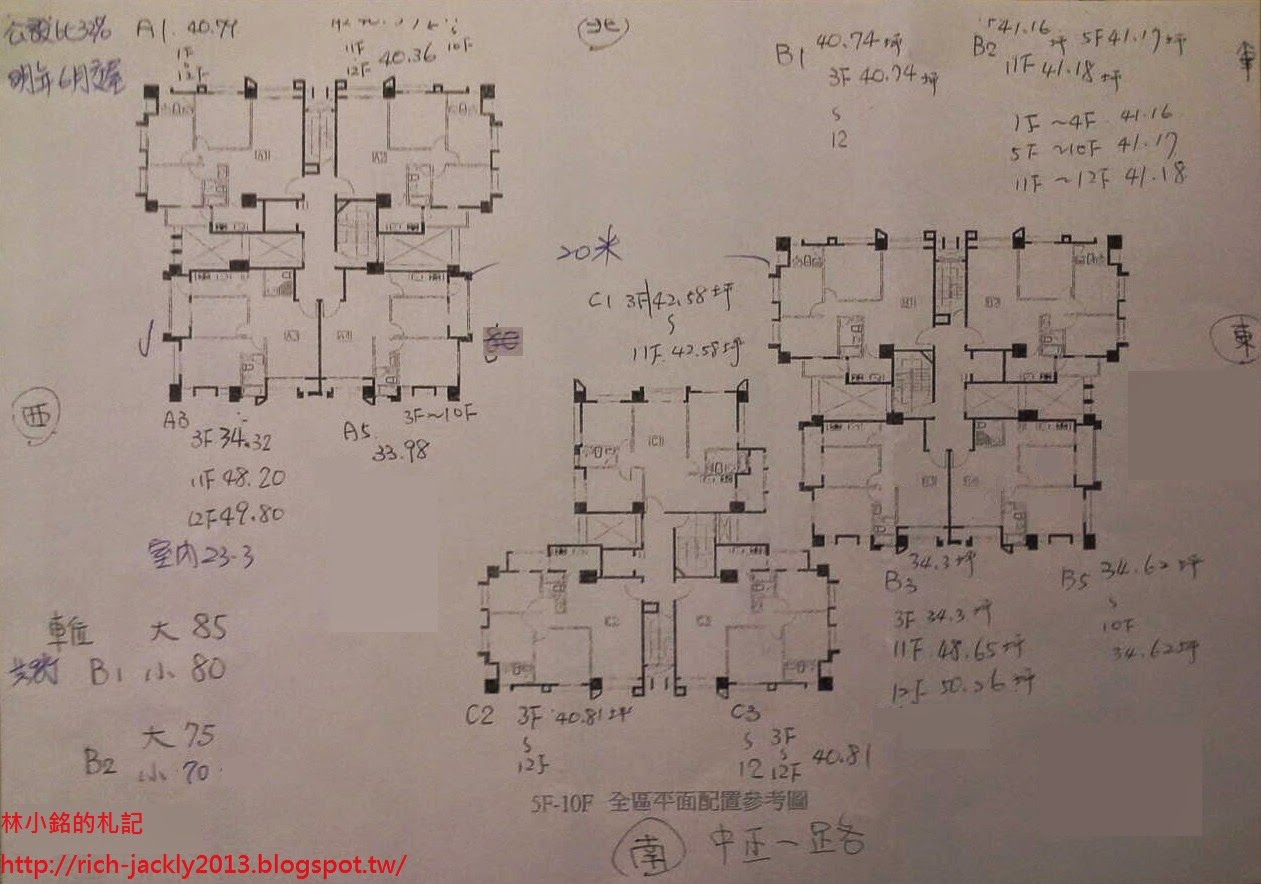 公設比33%
明年6月交屋
A1 40.79
1F
12F
11F
12F 40.36
10F
北
B1 40.74坪
3F 40.74坪
12
B2 41.16坪 5F 41.17坪
11F 41.18坪
1F～4F 41.16
5F～10F 41.17
11F～12F 41.18
20米
C1 3F 42.58坪
11F 42.58坪
東
西
A3
3F 34.32
11F 48.20
12F 49.80
室內23.3
A5 3F～10F
33.98
B3 34.3坪
3F 34.3坪
11F 48.65坪
12F 50.26坪
B5 34.62坪
10F
34.62坪
車位 大 85
B1 小 80
B2 大 75
小 70
C2 3F 40.81坪
12F
C3 3F
12 12F 40.81
5F-10F 全區平面配置參考圖
南 中正一路
林小銘的札記
http://rich-jackly2013.blogspot.tw/